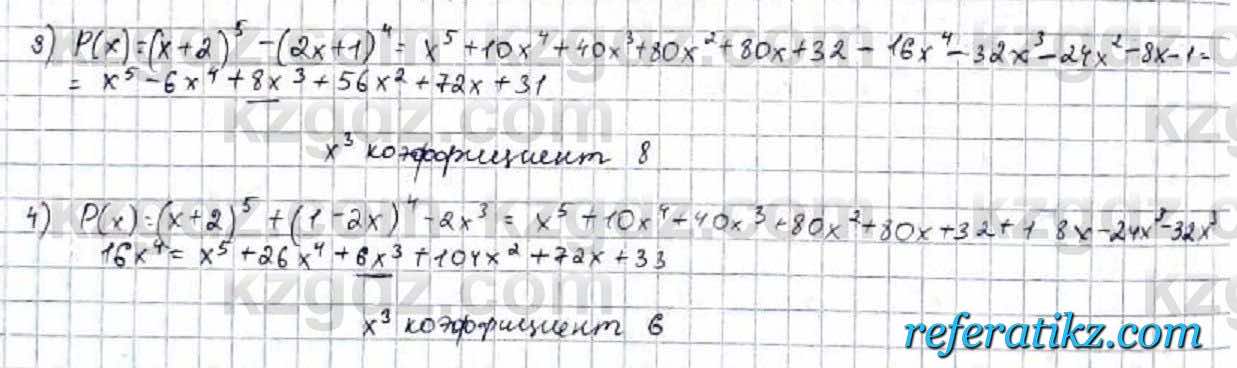 3) P(x)=(x+2)⁵-(2x+1)⁴= x⁵+10x⁴+40x³+80x²+80x+32-16x⁴-32x³-24x²-8x-1=
= x⁵-6x⁴+8x³+56x²+72x+31
kzgdz.com
x³ коэффициент 8
4) P(x)=(x+2)⁵+(1-2x)⁴-2x³= x⁵+10x⁴+40x³+80x²+80x+32+1 8x-24x³-32x³
16x⁴= x⁵+26x⁴+6x³+104x²+72x+33
kzgdz.com
x³ коэффициент 6
referatikz.com